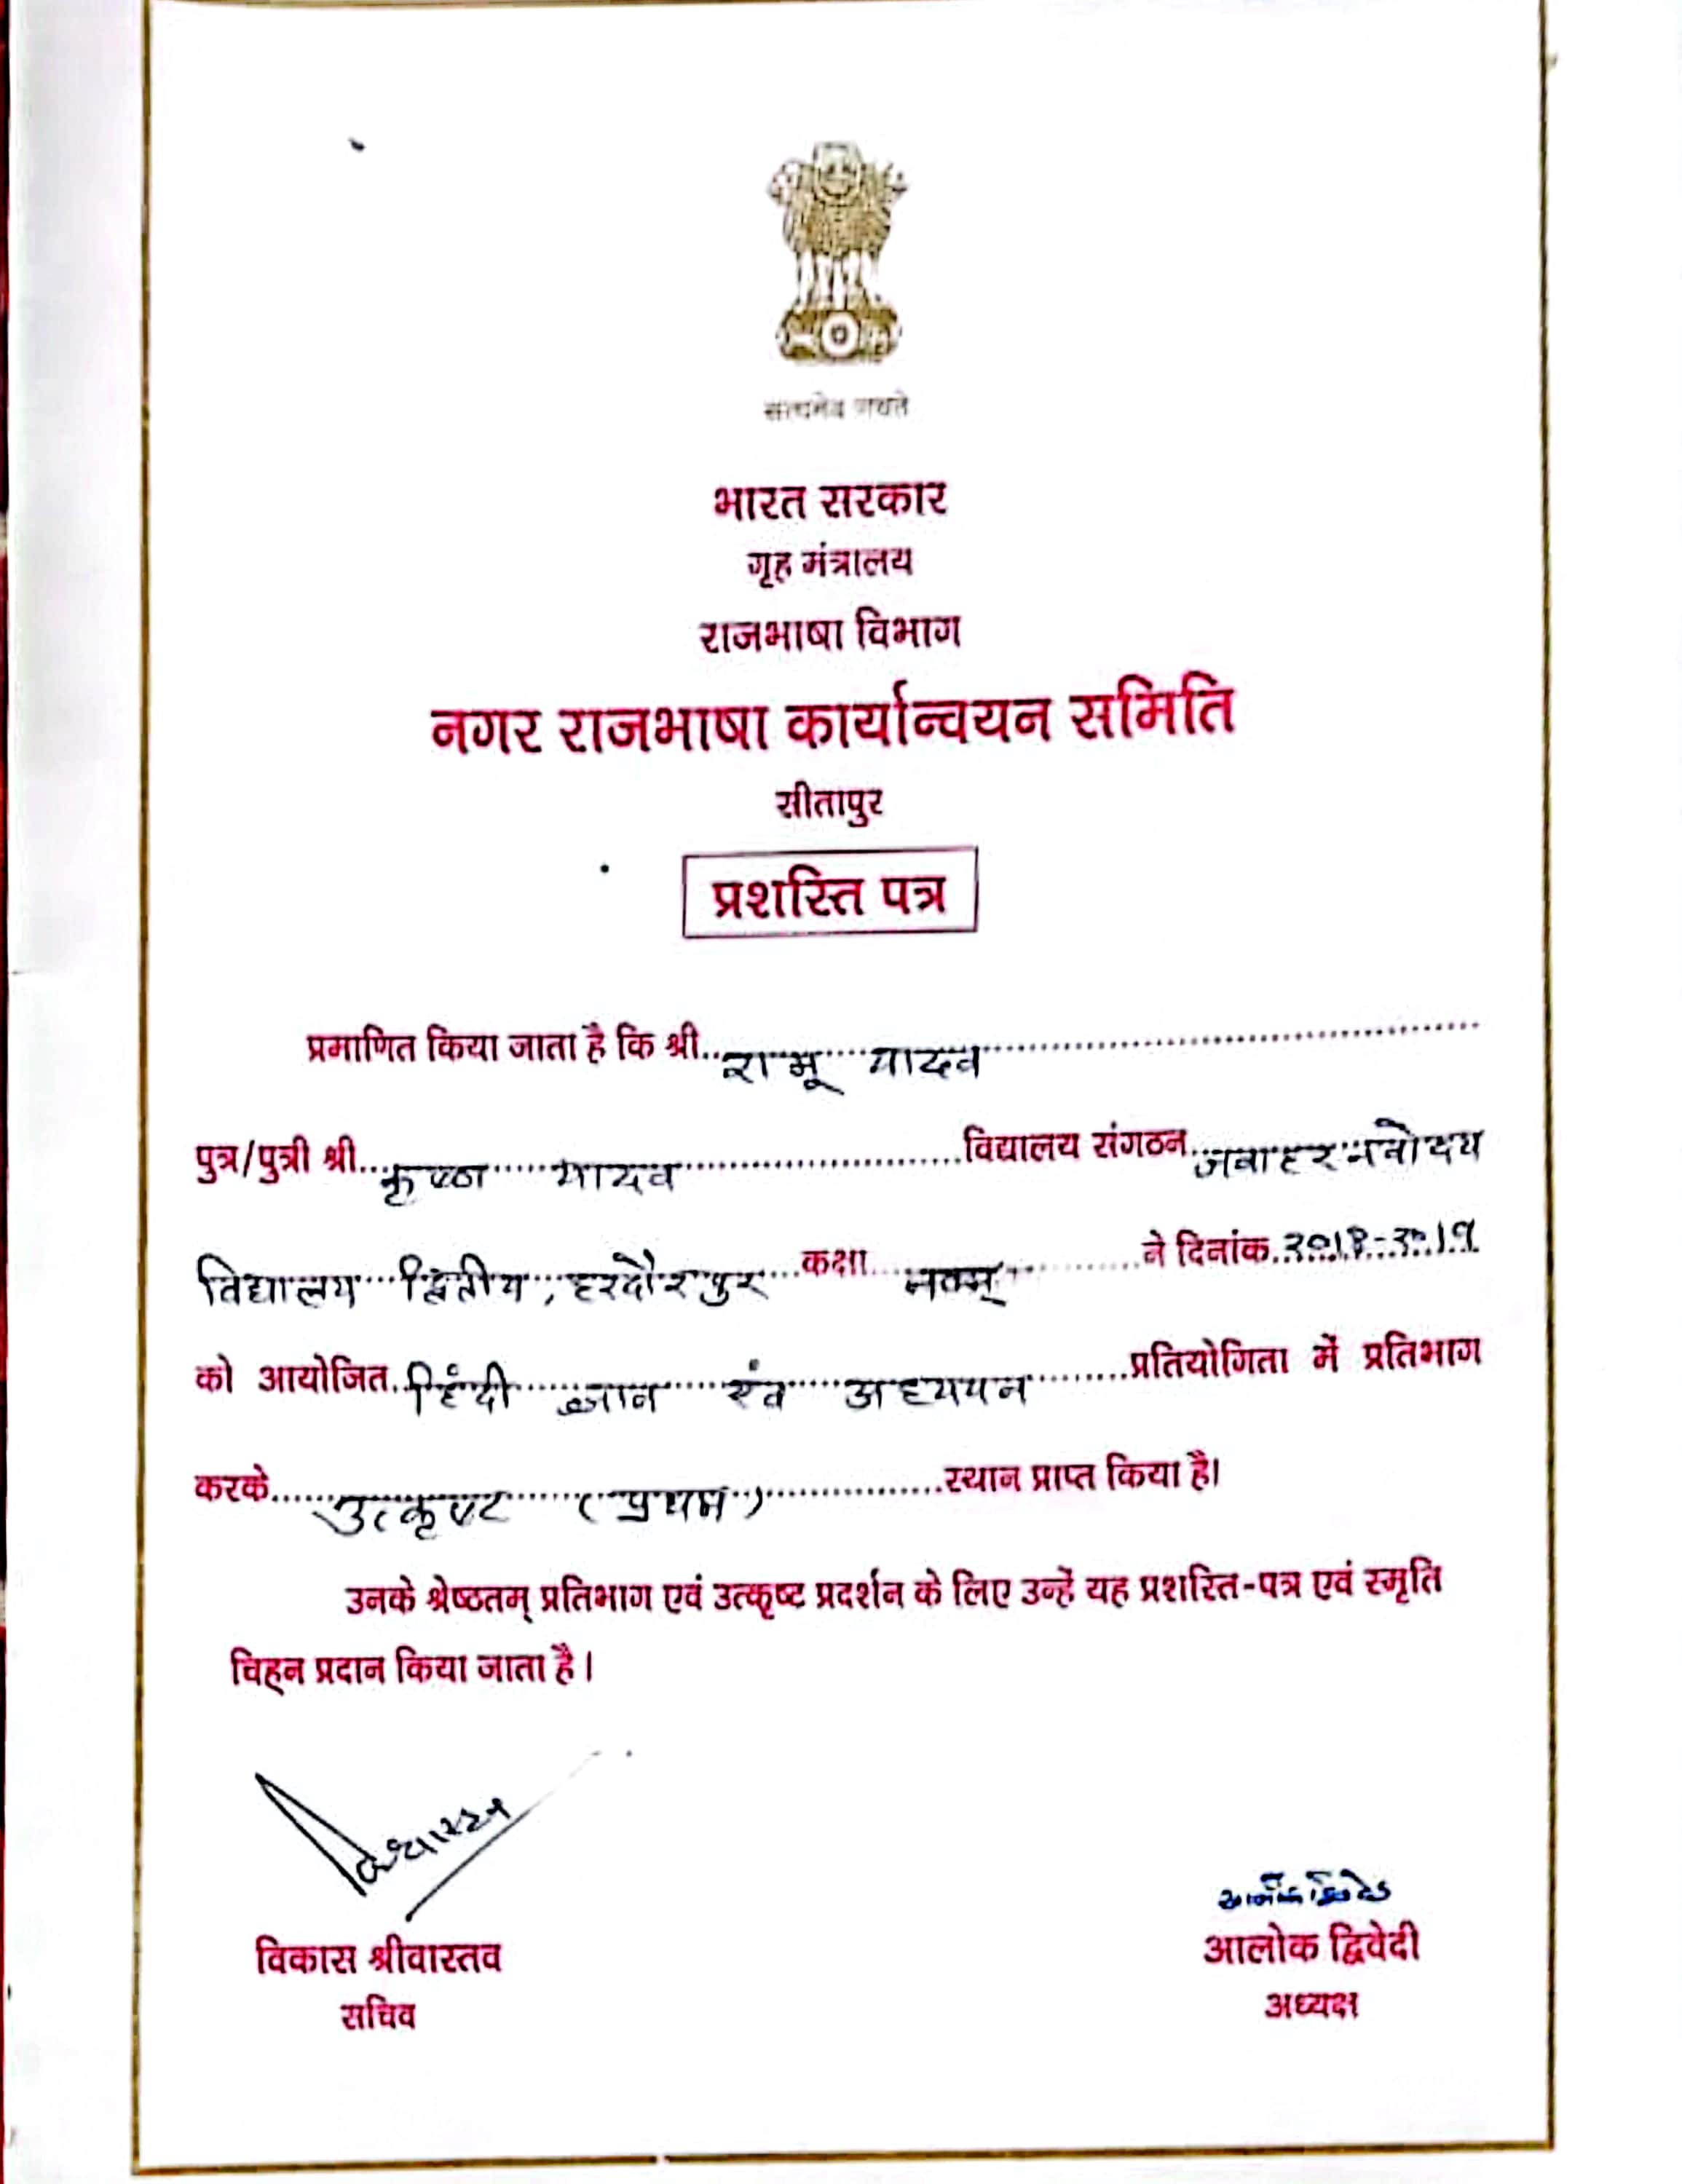 सत्यमेव जयते
भारत सरकार
गृह मंत्रालय
राजभाषा विभाग
नगर राजभाषा कार्यान्वयन समिति
सीतापुर
प्रशस्ति पत्र
प्रमाणित किया जाता है कि श्री रामू यादव
पुत्र/पुत्री श्री कृष्णा यादव विद्यालय संगठन जवाहर नवोदय
विद्यालय द्वितीय, हरदौरपुर कक्षा नवम् ने दिनांक 2018-2019
को आयोजित हिंदी ज्ञान एंव अध्ययन प्रतियोगिता में प्रतिभाग
करके उत्कृष्ट (प्रथम) स्थान प्राप्त किया है।
उनके श्रेष्ठतम् प्रतिभाग एवं उत्कृष्ट प्रदर्शन के लिए उन्हें यह प्रशस्ति-पत्र एवं स्मृति
चिह्न प्रदान किया जाता है।
आलोक द्विवेदी
विकास श्रीवास्तव
सचिव
अध्यक्ष